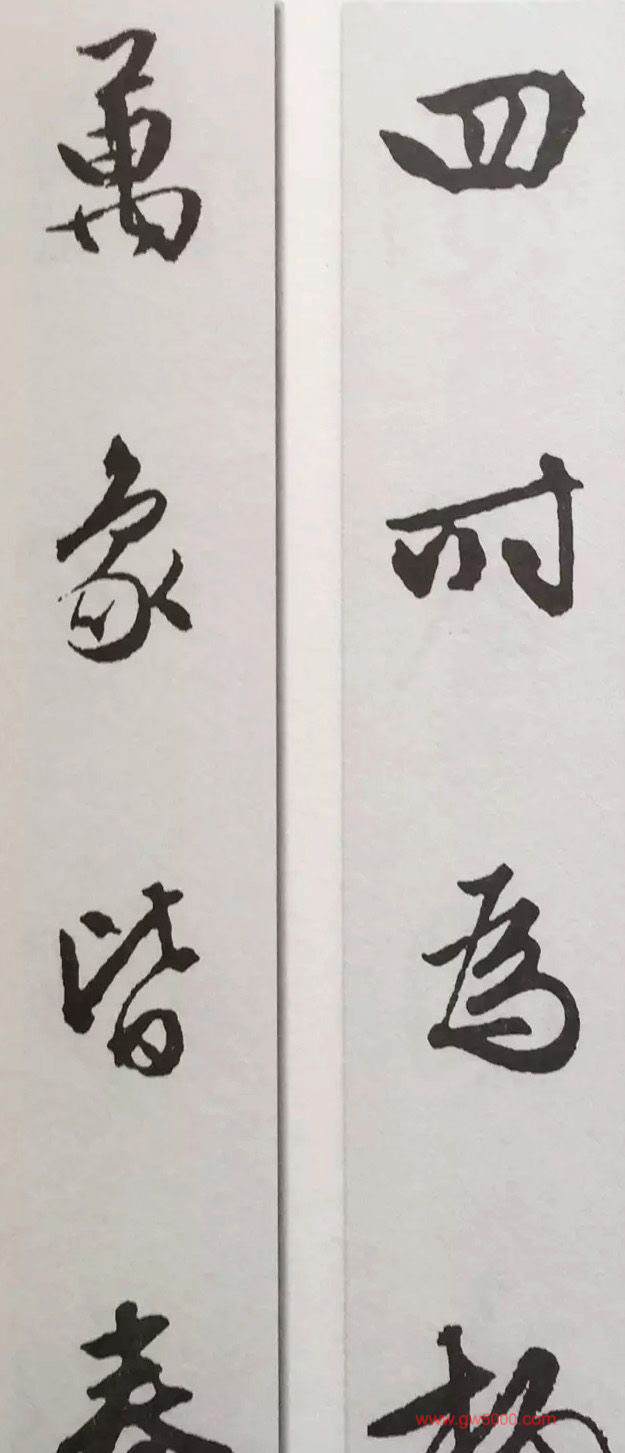 四时為
萬象皆春
www.gw5000.com